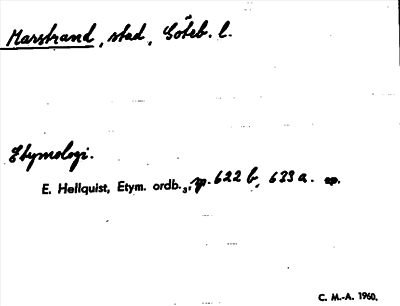 Marstrand, stad, Göteb. l.
Etymologi.
E. Hellquist, Etym. ordb.3, sp. 622 b, 633 a.
C. M.-A. 1960.